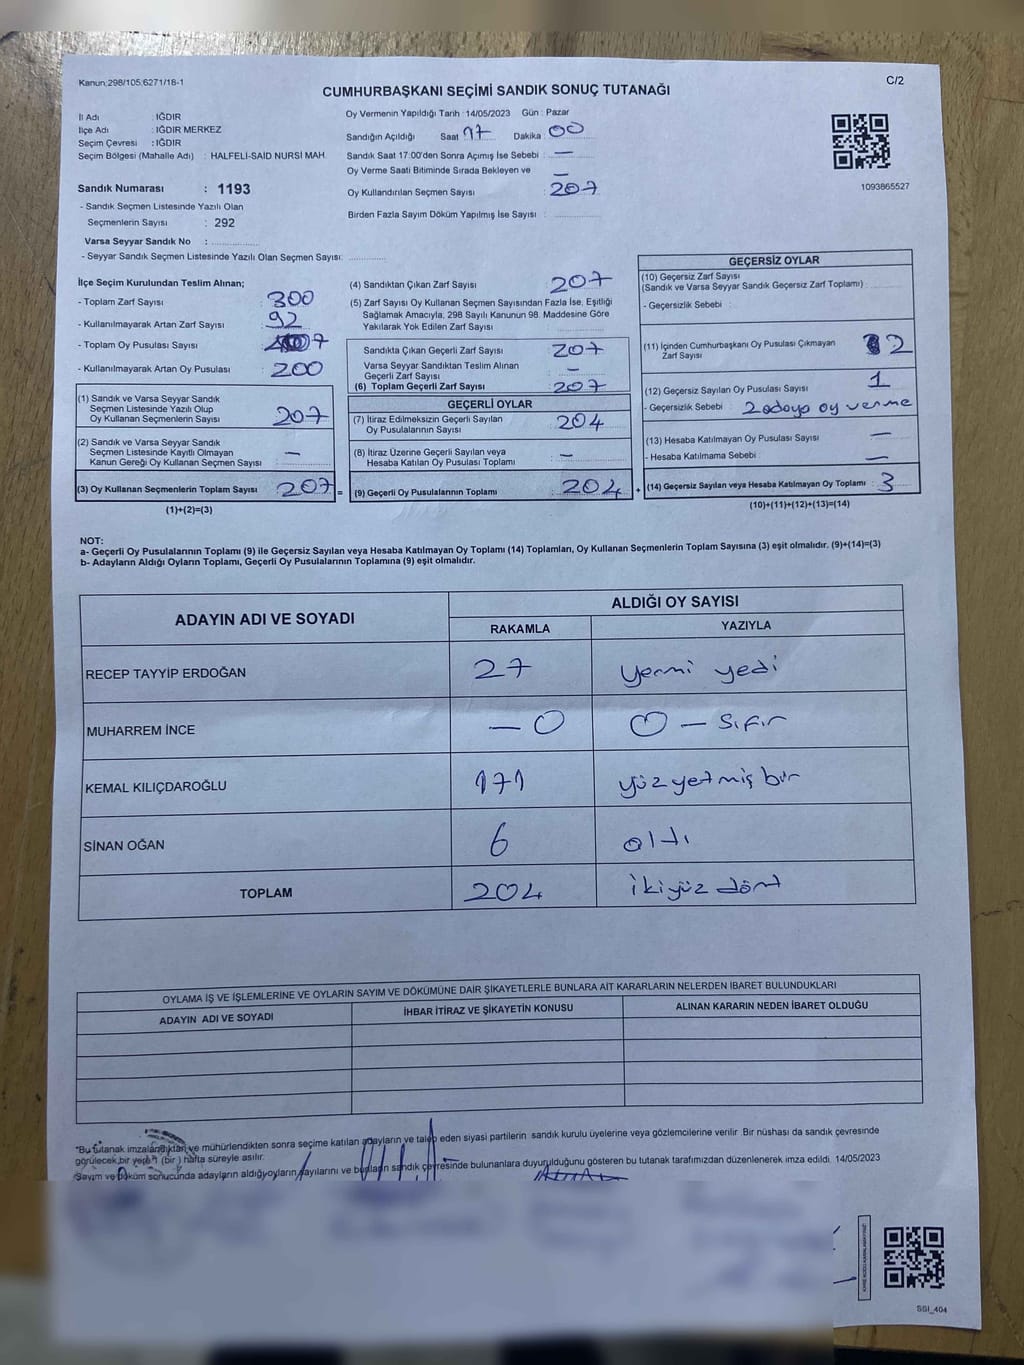 Kanun:298/105,6271/18-1
C/2
CUMHURBAŞKANI SEÇİMİ SANDIK SONUÇ TUTANAĞI
İl Adı : IĞDIR
İlçe Adı : IĞDIR MERKEZ
Seçim Çevresi : IĞDIR
Seçim Bölgesi (Mahalle Adı) : HALFELİ-SAİD NURSİ MAH.
Sandık Numarası : 1193
- Sandık Seçmen Listesinde Yazılı Olan
Seçmenlerin Sayısı : 292
Varsa Seyyar Sandık No :
- Seyyar Sandık Seçmen Listesinde Yazılı Olan Seçmen Sayısı:
Oy Vermenin Yapıldığı Tarih : 14/05/2023 Gün : Pazar
Sandığın Açıldığı Saat 17 Dakika : 00
Sandık Saat 17:00'den Sonra Açımış İse Sebebi : —
Oy Verme Saati Bitiminde Sırada Bekleyen ve —
Oy Kullandırılan Seçmen Sayısı : 207
Birden Fazla Sayım Döküm Yapılmış İse Sayısı :
1093865527
İlçe Seçim Kurulundan Teslim Alınan;
- Toplam Zarf Sayısı : 300
- Kullanılmayarak Artan Zarf Sayısı : 92
- Toplam Oy Pusulası Sayısı :
- Kullanılmayarak Artan Oy Pusulası : 200
(1) Sandık ve Varsa Seyyar Sandık
Seçmen Listesinde Yazılı Olup
Oy Kullanan Seçmenlerin Sayısı : 207
(2) Sandık ve Varsa Seyyar Sandık
Seçmen Listesinde Kayıtlı Olmayan
Kanun Gereği Oy Kullanan Seçmen Sayısı : —
(3) Oy Kullanan Seçmenlerin Toplam Sayısı : 207 =
(1)+(2)=(3)
(4) Sandıktan Çıkan Zarf Sayısı : 207
(5) Zarf Sayısı Oy Kullanan Seçmen Sayısından Fazla İse, Eşitliği
Sağlamak Amacıyla, 298 Sayılı Kanunun 98. Maddesine Göre
Yakılarak Yok Edilen Zarf Sayısı :
Sandıkta Çıkan Geçerli Zarf Sayısı : 207
Varsa Seyyar Sandıktan Teslim Alınan
Geçerli Zarf Sayısı : —
(6) Toplam Geçerli Zarf Sayısı : 207
GEÇERLİ OYLAR
(7) İtiraz Edilmeksizin Geçerli Sayılan
Oy Pusulalarının Sayısı : 204
(8) İtiraz Üzerine Geçerli Sayılan veya
Hesaba Katılan Oy Pusulası Toplamı : —
(9) Geçerli Oy Pusulalarının Toplamı : 204 +
GEÇERSİZ OYLAR
(10) Geçersiz Zarf Sayısı
(Sandık ve Varsa Seyyar Sandık Geçersiz Zarf Toplamı) :
- Geçersizlik Sebebi :
(11) İçinden Cumhurbaşkanı Oy Pusulası Çıkmayan
Zarf Sayısı : 2
(12) Geçersiz Sayılan Oy Pusulası Sayısı : 1
- Geçersizlik Sebebi : 2 adaya oy verme
(13) Hesaba Katılmayan Oy Pusulası Sayısı : —
- Hesaba Katılmama Sebebi : —
(14) Geçersiz Sayılan veya Hesaba Katılmayan Oy Toplamı : 3
(10)+(11)+(12)+(13)=(14)
NOT:
a- Geçerli Oy Pusulalarının Toplamı (9) ile Geçersiz Sayılan veya Hesaba Katılmayan Oy Toplamı (14) Toplamları, Oy Kullanan Seçmenlerin Toplam Sayısına (3) eşit olmalıdır. (9)+(14)=(3)
b- Adayların Aldığı Oyların Toplamı, Geçerli Oy Pusulalarının Toplamına (9) eşit olmalıdır.
ADAYIN ADI VE SOYADI
ALDIĞI OY SAYISI
RAKAMLA YAZIYLA
RECEP TAYYİP ERDOĞAN 27 yermi yedi
MUHARREM İNCE — 0 0 — sıfır
KEMAL KILIÇDAROĞLU 171 yüz yetmiş bir
SİNAN OĞAN 6 altı
TOPLAM 204 ikiyüz dört
OYLAMA İŞ VE İŞLEMLERİNE VE OYLARIN SAYIM VE DÖKÜMÜNE DAİR ŞİKAYETLERLE BUNLARA AİT KARARLARIN NELERDEN İBARET BULUNDUKLARI
ADAYIN ADI VE SOYADI İHBAR İTİRAZ VE ŞİKAYETİN KONUSU ALINAN KARARIN NEDEN İBARET OLDUĞU
*Bu tutanak imzalandıktan ve mühürlendikten sonra seçime katılan adayların ve talep eden siyasi partilerin sandık kurulu üyelerine veya gözlemcilerine verilir. Bir nüshası da sandık çevresinde
görülecek bir yere (bir) hafta süreyle asılır.
Sayım ve döküm sonucunda adayların aldığı oyların sayılarını ve bunların sandık çevresinde bulunanlara duyurulduğunu gösteren bu tutanak tarafımızdan düzenlenerek imza edildi. 14/05/2023
KARE KODU KARALAMAYINIZ!
SGI_404